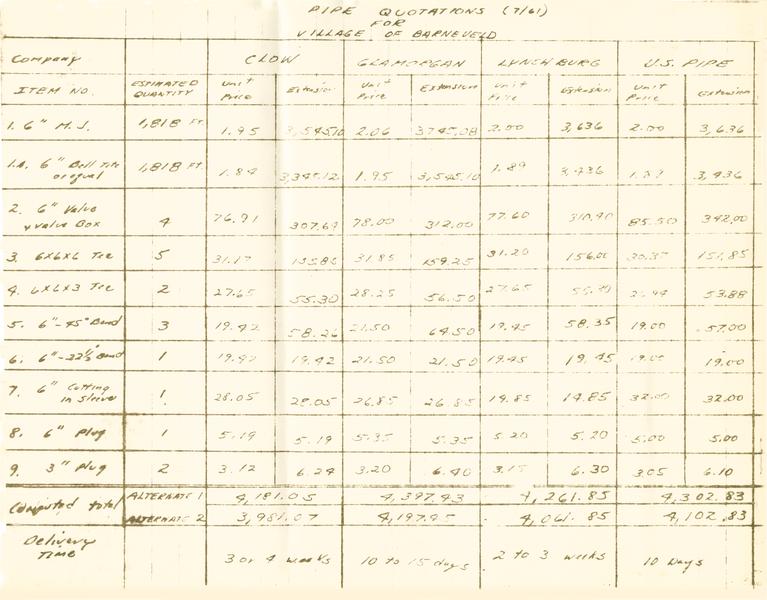 PIPE QUOTATIONS (7/61)
FOR
VILLAGE OF BARNEVELD
Company CLOW GLAMORGAN LYNCHBURG U.S. PIPE
ITEM NO. ESTIMATED QUANTITY Unit Price Extension Unit Price Extension Unit Price Extension Unit Price Extension
1. 6" M.J. 1,818 FT. 1.95 3,545.10 2.06 3745.08 2.00 3,636 2.00 3,636
1.A. 6" Bell Tite or equal 1,818 FT. 1.84 3,345.12 1.95 3,545.10 1.89 3,436 1.89 3,436
2. 6" Valve & Valve Box 4 76.91 307.64 78.00 312.00 77.60 310.40 85.50 342.00
3. 6x6x6 Tee 5 31.17 155.85 31.85 159.25 31.20 156.00 30.37 151.85
4. 6x6x3 Tee 2 27.65 55.30 28.25 56.50 27.65 55.30 26.94 53.88
5. 6"-45° Bend 3 19.42 58.26 21.50 64.50 19.45 58.35 19.00 57.00
6. 6"-22½° Bend 1 19.42 19.42 21.50 21.50 19.45 19.45 19.00 19.00
7. 6" Cutting in Sleeve 1 28.05 28.05 26.85 26.85 19.85 19.85 32.00 32.00
8. 6" Plug 1 5.19 5.19 5.35 5.35 5.20 5.20 5.00 5.00
9. 3" Plug 2 3.12 6.24 3.20 6.40 3.15 6.30 3.05 6.10
Computed total ALTERNATE 1 4,181.05 4,397.43 4,261.85 4,302.83
ALTERNATE 2 3,981.07 4,197.45 4,061.85 4,102.83
Delivery Time 3 or 4 weeks 10 to 15 days 2 to 3 weeks 10 Days